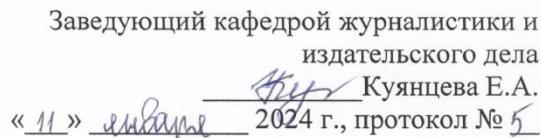 Заведующий кафедрой журналистики и
издательского дела
____________Куянцева Е.А.
«11» января 2024 г., протокол № 5